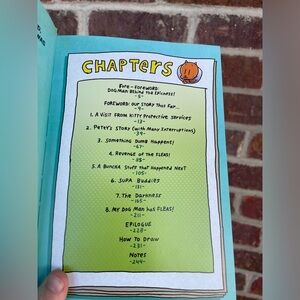 CHAPTERS
FORE-FOREWORD:
DOG MAN BEHIND THE EPICNESS!
-5-
FOREWORD: OUR STORY THUS FAR...
-9-
1. A VISIT FROM KITTY PROTECTIVE SERVICES
-13-
2. PETEY'S STORY (WITH MANY INTERRUPTIONS)
-39-
3. SOMETHING DUMB HAPPENS!
4. REVENGE OF THE FLEAS!
5. A BUNCHA STUFF THAT HAPPENED NEXT
-105-
6. SUPA BUDDIES
-131-
7. THE DARKNESS
-165-
8. MY DOG MAN HAS FLEAS!
-211-
EPILOGUE
-228-
HOW TO DRAW
-231-
NOTES
-244-